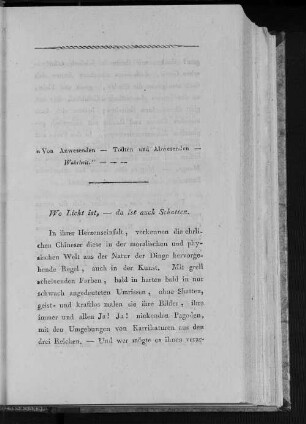 „Von Anwesenden — Todten und Abwesenden —
Wahrheit." — — —
Wo Licht ist, — da ist auch Schatten.
In ihrer Herzenseinfalt, verkennen die ehrli-
chen Chineser diese in der moralischen und phy-
sischen Welt aus der Natur der Dinge hervorge-
hende Regel, auch in der Kunst. Mit grell
scheinenden Farben, bald in harten bald in nur
schwach angedeuteten Umrissen, ohne Schatten,
geist- und kraftlos malen sie ihre Bilder, ihre
immer und allen Ja! Ja! nickenden Pagoden,
mit den Umgebungen von Karrikaturen aus den
drei Reichen. — Und wer mögte es ihnen verar-